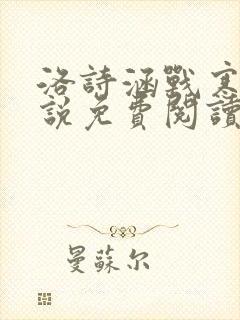 洛詩涵戰寒
說免費閱讀
曼蘇尔